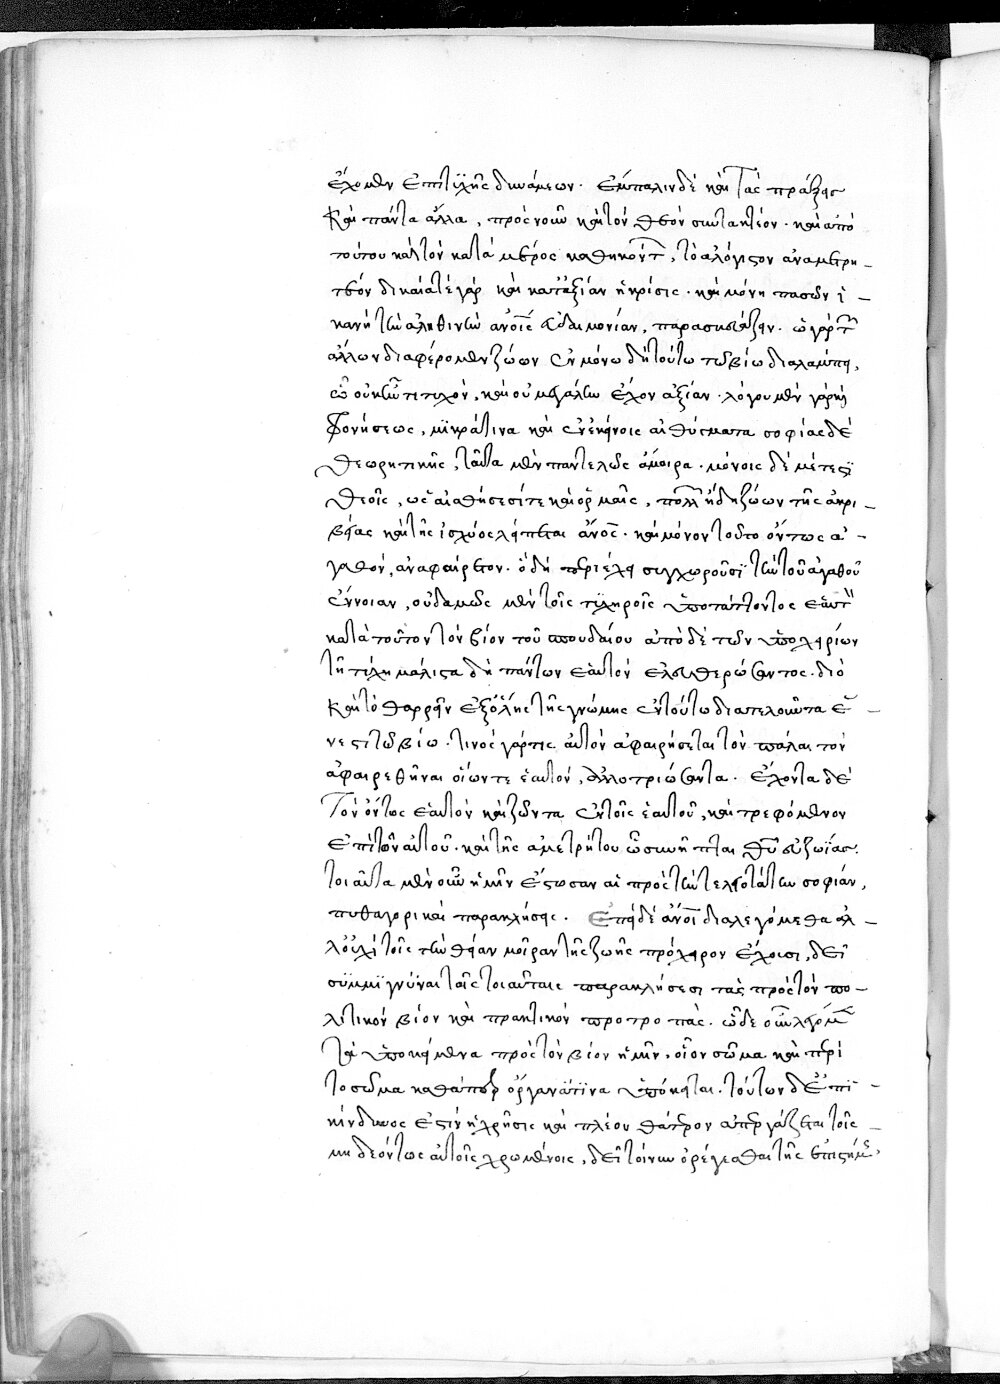 ἔχομεν ἐπὶ ψυχῆς δυνάμεων. ἔμπαλιν δὲ καὶ τὰς πράξεις
καὶ πάντα ἄλλα, πρὸς νοῦν καὶ τὸν θεὸν συντακτέον. καὶ ἀπὸ
τούτου καὶ τὸν κατὰ μέρος καθήκοντ, τὸ ἀλόγιστον ἀναμετρη-
τέον δικαία τὲ γὰρ καὶ κατἀξίαν ἡ κρίσις. καὶ μόνη πασῶν ἱ-
κανὴ τὴν ἀληθινὴν ἀνοις εὐδαιμονίαν, παρασκευάζειν. ὧ γὰρ τ
ἄλλων διαφέρομεν ζώων ἐν μόνω δὴ τούτω τῶ βίω διαλάμπει,
ὧ οὐκ τι τυχὸν, καὶ οὐ μεγάλην ἔχον ἀξίαν. λόγου μὲν γὰρ καὶ
φρονήσεως, μικρά τινα καὶ ἐν ἐκείνοις αἰθύσματα σοφίας δὲ
θεωρητικῆς, ταῦτα μὲν παντελῶς ἄμοιρα. μόνοις δὲ μέτεστι
θεοῖς, ὡς αἰσθήσεσί τε καὶ ὁρμαῖς, πολλ ἤδη ζώων τῆς ἀκρι-
βείας καὶ τῆς ἰσχύος λείπεται ἄνος. καὶ μόνον τοῦτο ὄντως ἀ-
γαθὸν, ἀναφαίρετον. ὃ δὴ περιέχειν συγχωροῦσι τὴν τοῦ ἀγαθοῦ
ἔννοιαν, οὐδαμῶς μὲν τοῖς τυχηροῖς ὑποτάττοντος ἑαυτ
κατὰ τοῦτον τὸν βίον τοῦ σπουδαίου ἀπὸ δὲ τῶν ὑποχειρίων
τῆ τύχη μάλιστα δὴ πάντων ἑαυτὸν ἐλευθερώσαντος. διὸ
καὶ τὸ θαρρεῖν ἐξ ὅλης τῆς γνώμης ἐν τούτω διατελοῦντα ἔ-
νεστι τῶ βίω. τινὸς γάρ τις αὐτὸν ἀφαιρήσεται τὸν πάλαι τοῦ
ἀφαιρεθῆναι οἵων τε ἑαυτὸν, ἀλλοτριώσαντα. ἔχοντα δὲ
τὸν ὄντως ἑαυτὸν καὶ ζῶντα ἐν τοῖς ἑαυτοῦ, καὶ τρεφόμενον
ἐπὶ τῶν αὐτοῦ. καὶ τῆς ἀμετρήτου ὧ συνῆπται θεοῦ εὐζωΐας.
τοιαῦτα μὲν οὖν ἡμῖν ἔστωσαν αἱ πρὸς τὴν τελειοτάτην σοφίαν,
πυθαγορικαὶ παρακλήσεις. Ἐπεὶ δὲ ἀνοι διαλεγόμεθα ἀλ-
λ οὐχὶ τοῖς τὴν θείαν μοῖραν τῆς ζωῆς πρόχειρον ἔχουσι, δεῖ
συμμιγνύναι ταῖς τοιαύταις παρακλήσεσι τὰς πρὸς τὸν πο-
λιτικὸν βίον καὶ πρακτικὸν προτροπάς. ὧδε οὖν λέγομ
τὰ ὑποκείμενα πρὸς τὸν βίον ἡμῖν, οἷον σῶμα καὶ περὶ
τὸ σῶμα καθάπερ ὄργανά τινα ὑπόκειται. τούτων δ' ἐπι-
κίνδυνος ἐστὶν ἡ χρῆσις καὶ πλέον θάτερον ἀπεργάζεται τοῖς
μὴ δεόντως αὐτοῖς χρωμένοις, δεῖ τοίνυν ὀρέγεσθαι τῆς ἐπιστήμ,